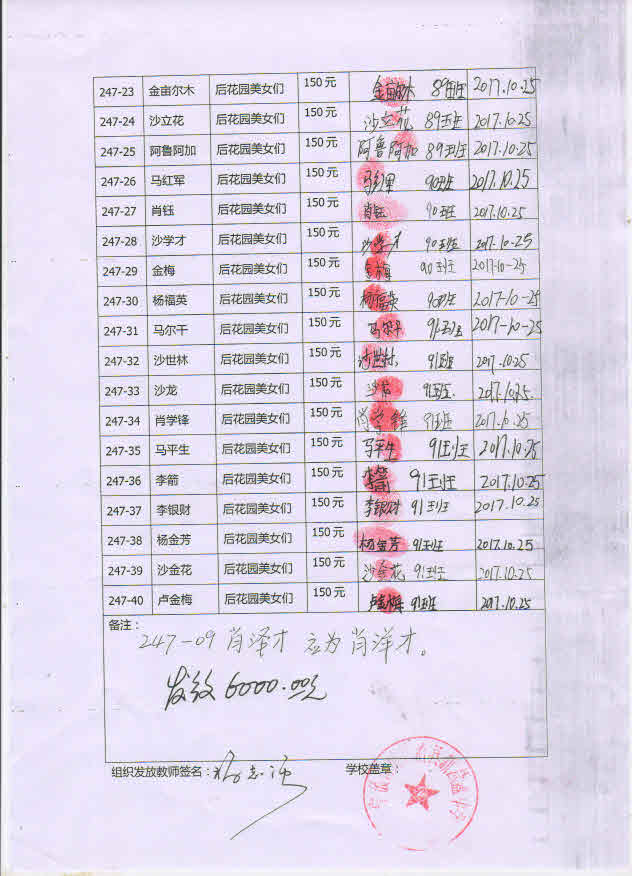 247-23 金亩尔木 后花园美女们 150元 金亩尔木 89班 2017.10.25
247-24 沙立花 后花园美女们 150元 沙立花 89班 2017.10.25
247-25 阿鲁阿加 后花园美女们 150元 阿鲁阿加 89班 2017.10.25
247-26 马红军 后花园美女们 150元 马红军 90班 2017.10.25
247-27 肖钰 后花园美女们 150元 肖钰 90班 2017.10.25
247-28 沙学才 后花园美女们 150元 沙学才 90班 2017.10-25
247-29 金梅 后花园美女们 150元 金梅 90班 2017-10-25
247-30 杨福英 后花园美女们 150元 杨福英 90班 2017-10-25
247-31 马尔干 后花园美女们 150元 马尔干 91班 2017-10-25
247-32 沙世林 后花园美女们 150元 沙世林 91班 2017.10.25
247-33 沙龙 后花园美女们 150元 沙龙 91班. 2017.10.25.
247-34 肖学锋 后花园美女们 150元 肖学锋 91班 2017.10.25
247-35 马平生 后花园美女们 150元 马平生 91班 2017.10.25
247-36 李箭 后花园美女们 150元 李箭 91班 2017.10.25
247-37 李银财 后花园美女们 150元 李银财 91班 2017.10.25
247-38 杨金芳 后花园美女们 150元 杨金芳 91班 2017.10.25
247-39 沙金花 后花园美女们 150元 沙金花 91班 2017.10.25
247-40 卢金梅 后花园美女们 150元 卢金梅 91班 2017.10.25
备注：
247-09 肖泽才 应为肖洋才。
发放6000.00元
组织发放教师签名： 学校盖章：